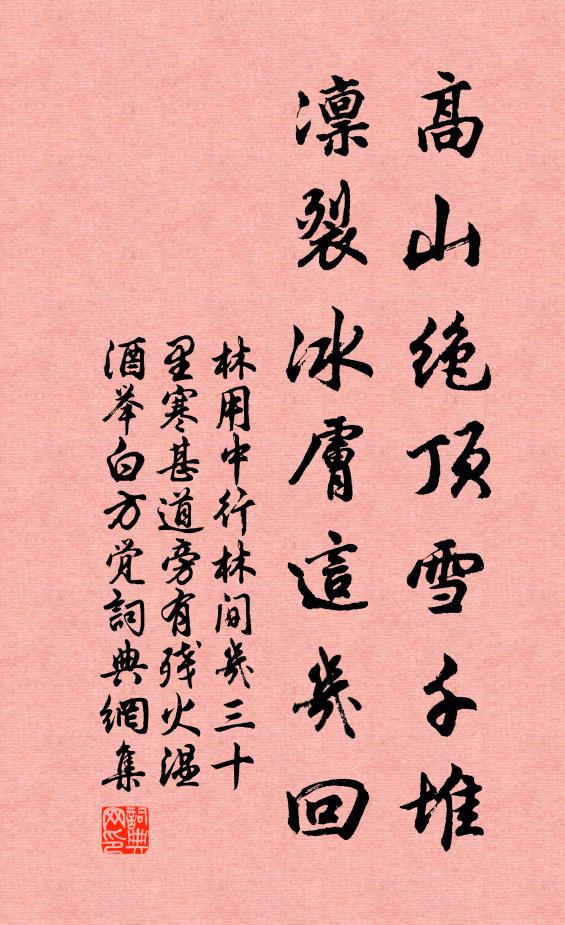 高山绝顶雪千堆
凛裂冰膚這幾回
林用中行林间幾三十
里寒甚道旁有残火温
酒举白方觉詞典網集
詞典
网印